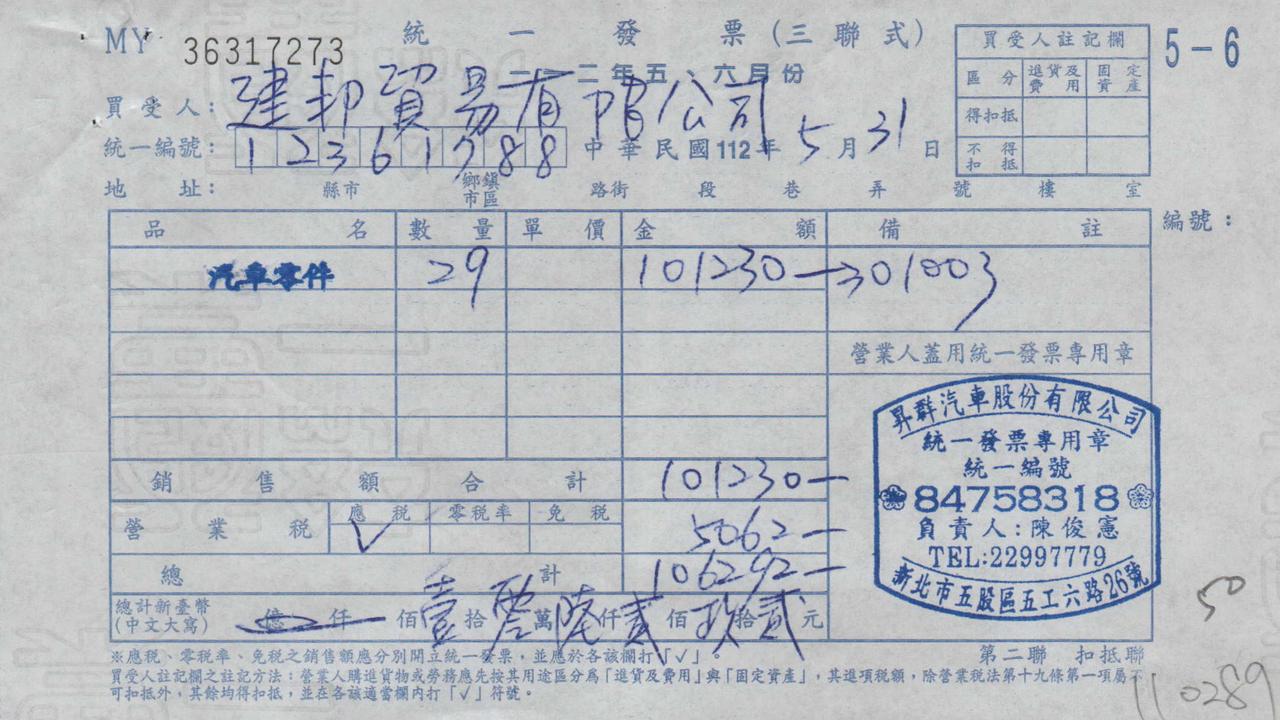 MY 36317273
統一發票(三聯式)
一一二年五、六月份
5-6
買受人註記欄
區分 進貨及費用 固定資產
得扣抵
不得扣抵
買受人：建邦貿易有限公司
統一編號：12361788
中華民國112年5月31日
地址： 縣市 鄉鎮市區 路街 段 巷 弄 號 樓 室
品名 數量 單價 金額 備註 編號：
汽車零件 29 101230— 301003
營業人蓋用統一發票專用章
銷售額合計 101230—
營業稅 應稅 √ 零稅率 免稅 5062—
總計 106292—
總計新臺幣
(中文大寫)
億 仟 佰 壹 拾 零 萬 陸 仟 貳 佰 玖 拾 貳 元
昇群汽車股份有限公司
統一發票專用章
統一編號
84758318
負責人:陳俊憲
TEL:22997779
新北市五股區五工六路26號
50
※應稅、零稅率、免稅之銷售額應分別開立統一發票，並應於各該欄打「√」。
第二聯 扣抵聯
買受人註記欄之註記方法：營業人購進貨物或勞務應先按其用途區分為「進貨及費用」與「固定資產」，其進項稅額，除營業稅法第十九條第一項屬不
可扣抵外，其餘均得扣抵，並在各該適當欄內打「√」符號。
110289